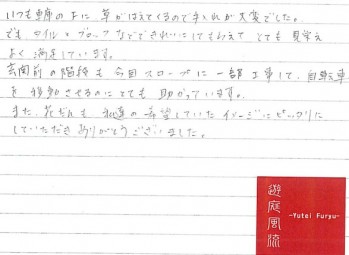 いつも車庫の上に草がはえてくるので手入れが大変でした。
でもタイルとブロックなどできれいにしてもらえてとても見栄え
よく満足しています。
玄関前の階段も今回スロープに一部工事して、自転車
を移動させるのにとても助かっています。
また、花だんも私達の希望していたイメージにピッタリに
していただきありがとうございました。
遊庭風流
-Yutei Furyu-